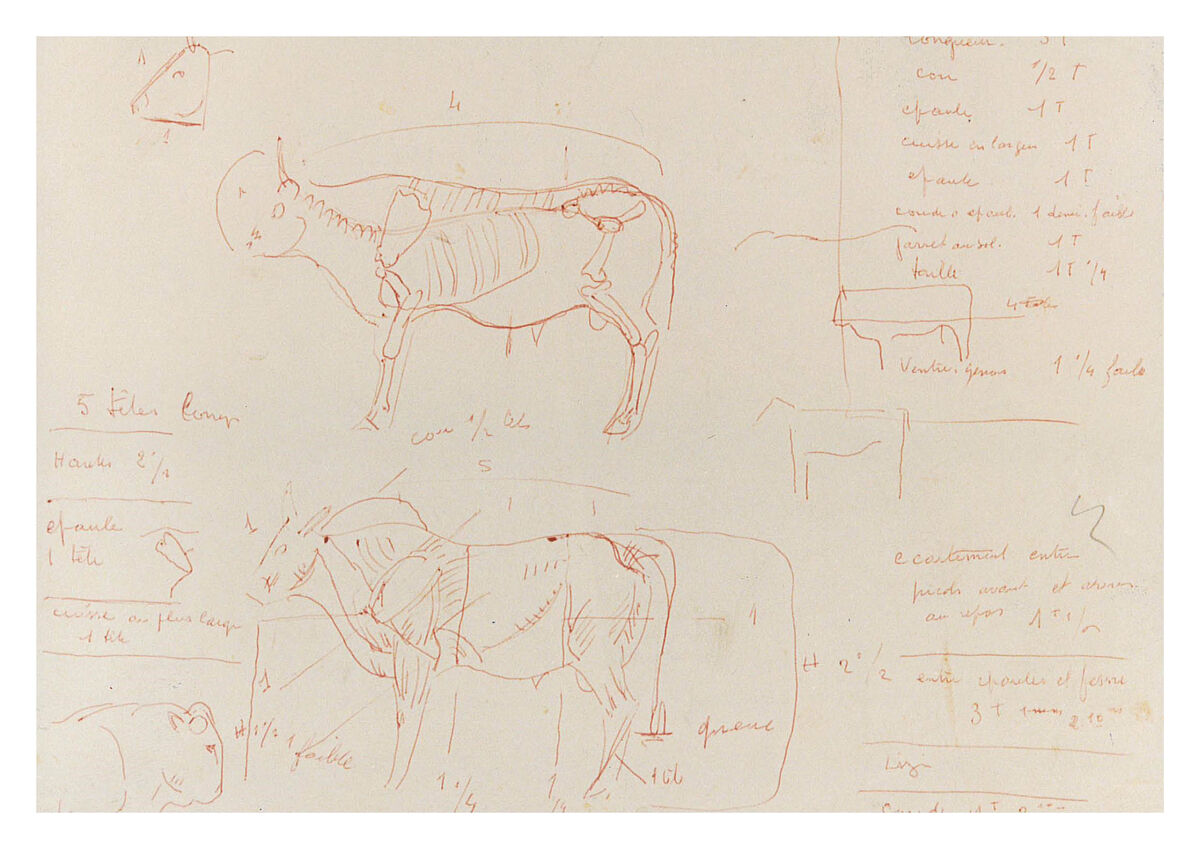 1
1
4
1
longueur. 3 T
cou 1/2 T
epaule 1 T
cuisse en largeur 1 T
epaule 1 T
coude a epaul. 1 demi. faible
jarret au sol. 1 T
taille 1 T 1/4
4
Ventre. genoux 1 1/4 faible
5 têtes long
Haute 2 1/2
epaule
1 tête
cuisse au plus large
1 tête
cou 1/2 tête
5
1
1
1
1
1
H 2 1/2
queue
1 tête
H 1/2 1
faible
1 1/4
1
ecartement entre
pieds avant et
au repos 1 T 1/2
entre epaules et fesse
3 T
1 T